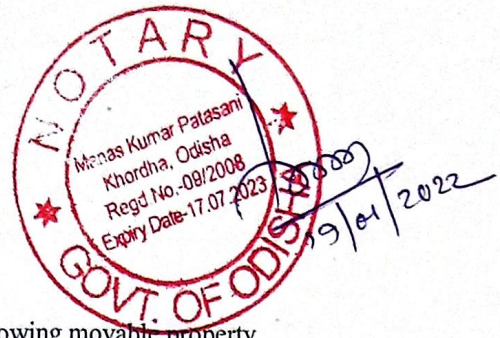 NOTARY
Manas Kumar Patasani
Khordha, Odisha
Regd No.-09/2008
Expiry Date-17.07.2023
GOVT. OF ODISHA
19/01/2022
owing movable property